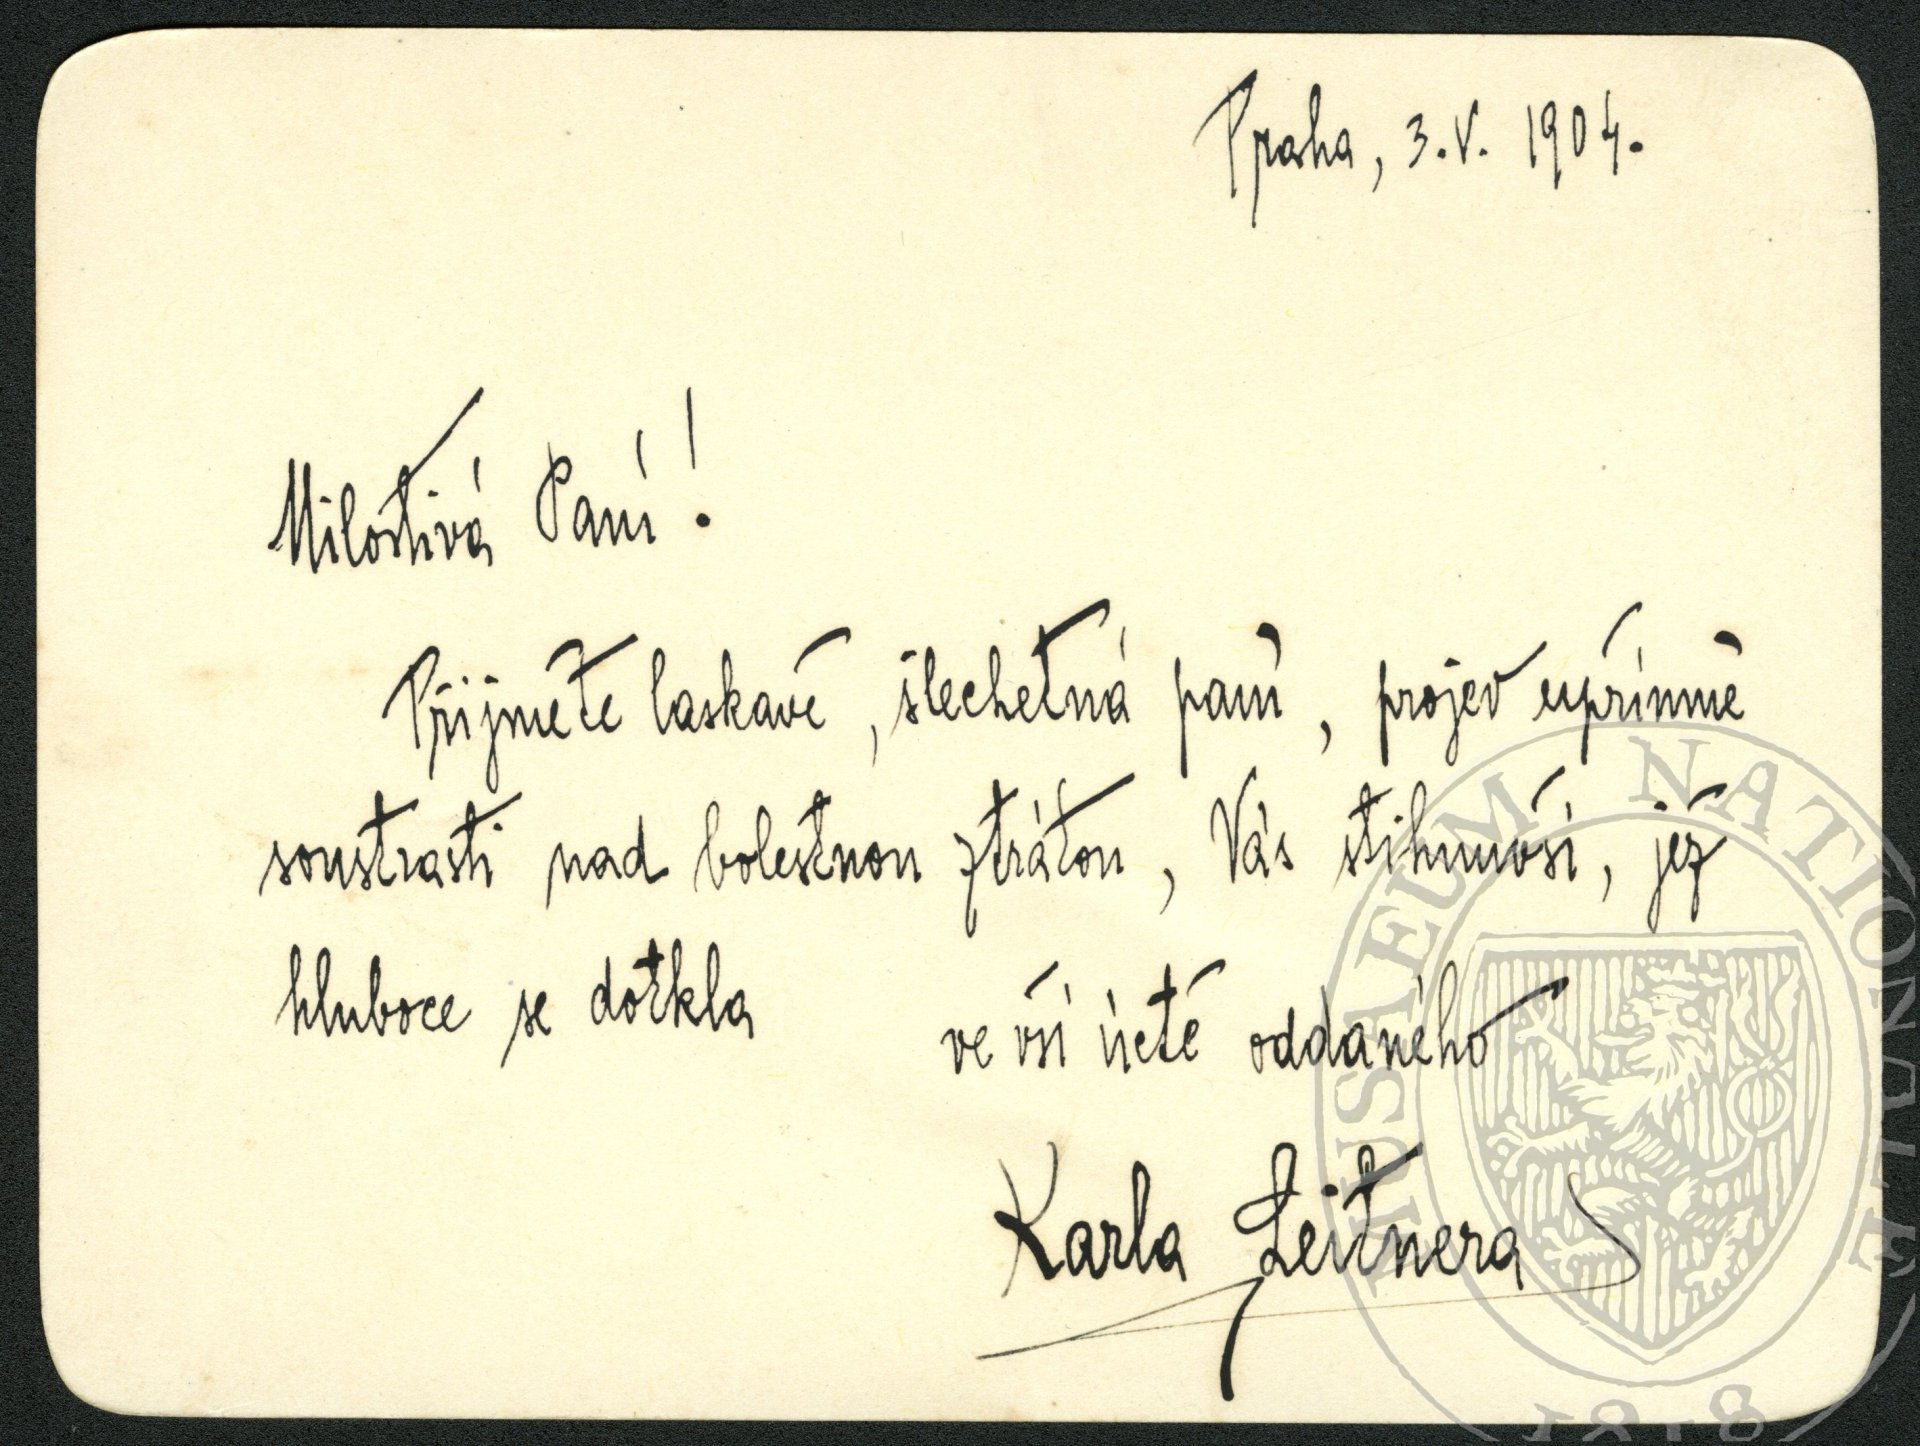 Praha, 3.V. 1904.
Milostivá Paní!
Přijměte laskavě, šlechetná paní, projev upřímné
soustrasti nad bolestnou ztrátou, Vás stihnuvší, jež
hluboce se dotkla
ve vší úctě oddaného
Karla Leitnera
MUSAEUM NATIONALE
1818